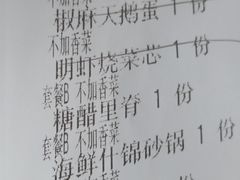 不加香菜
椒麻天鹅蛋 1 份
不加香菜
明虾烧菜芯 1 份
套餐B 不加香菜
糖醋里脊 1 份
套餐B 不加香菜
海鲜什锦砂锅 1 份